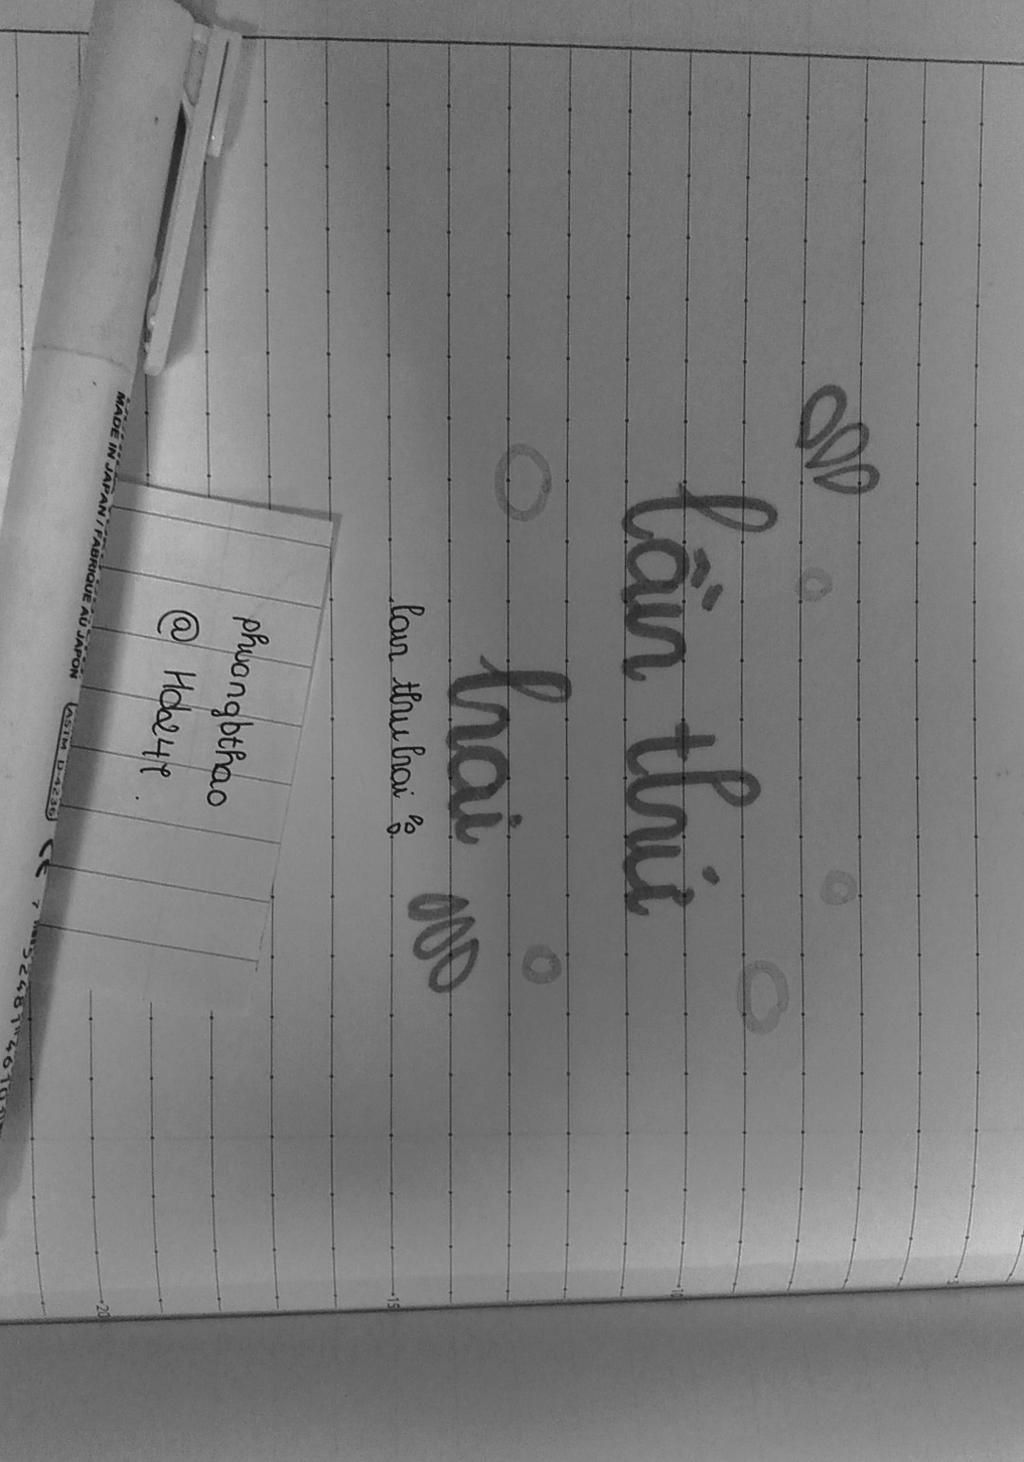 lần thứ
hai
lan thu hai
phuongbthao
@ Hda24t.
MADE IN JAPAN / FABRIQUE AU JAPON
ASTM D-4236
CE
20
15
10